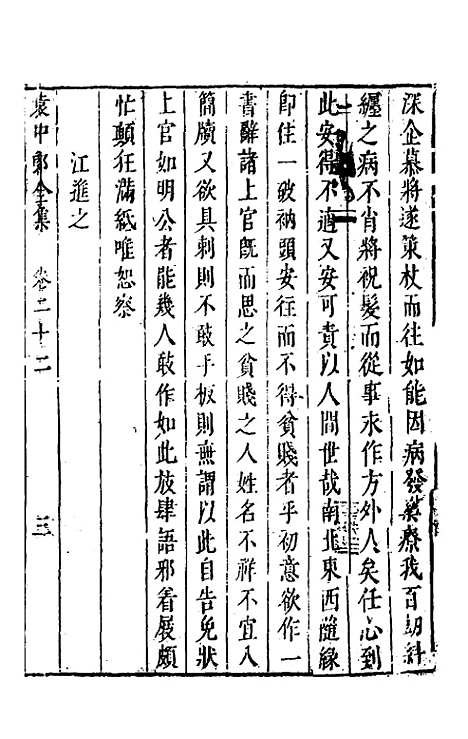 深企慕將遂策杖而往如能因病發藥療我百刼糾
纏之病不肖將祝髮而從事永作方外人矣任心到
此安得不適又安可責以人間世哉南北東西隨緣
卽住一破衲頭安往而不得貧賤者乎初意欲作一
書辭諸上官旣而思之貧賤之人姓名不祥不宜入
簡牘又欲具刺則不敢手板則無謂以此自告免狀
上官如明公者能幾人敢作如此放肆語邪着屐頗
忙顛狂滿紙唯恕察
江進之
袁中郎全集 卷二十二 三